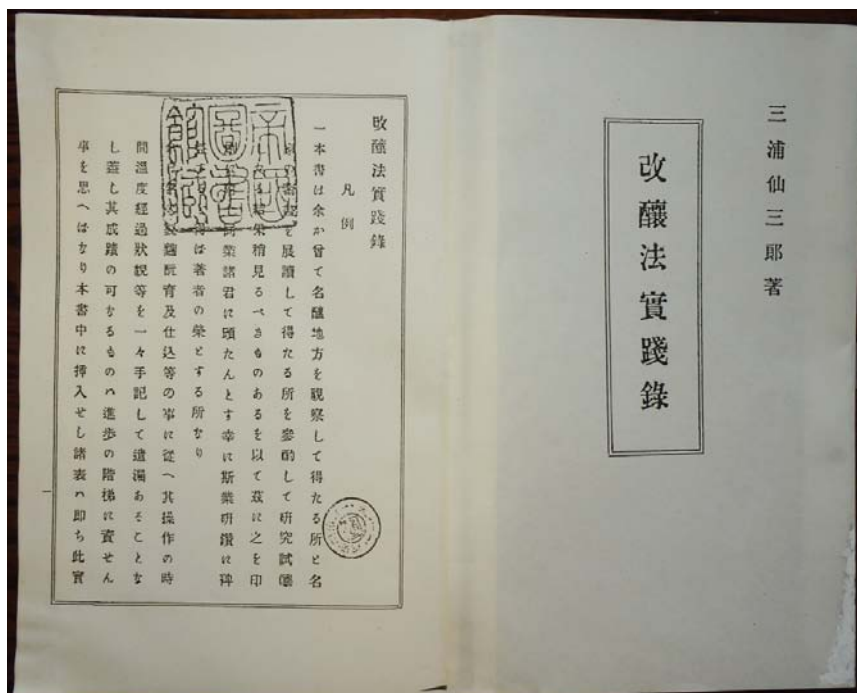 三浦仙三郎著
改釀法實踐錄
改釀法實踐錄
凡例
一本書は余か曾て名釀地方を視察して得たる所と名
を展讀して得たる所を參酌して研究試釀
結果稍見るべきものあるを以て茲に之を印
同業諸君に頒たんとす幸に斯業硏鑽に裨
得は著者の榮とする所なり
製麹酛育及仕込等の事に從へ其操作の時
間溫度經過狀況等を一々手記して遺漏あることな
し蓋し其成蹟の可なるものハ進步の階梯に資せん
事を思へはなり本書中に揷入せし諸表ハ卽ち此實
一
帝國圖書館藏